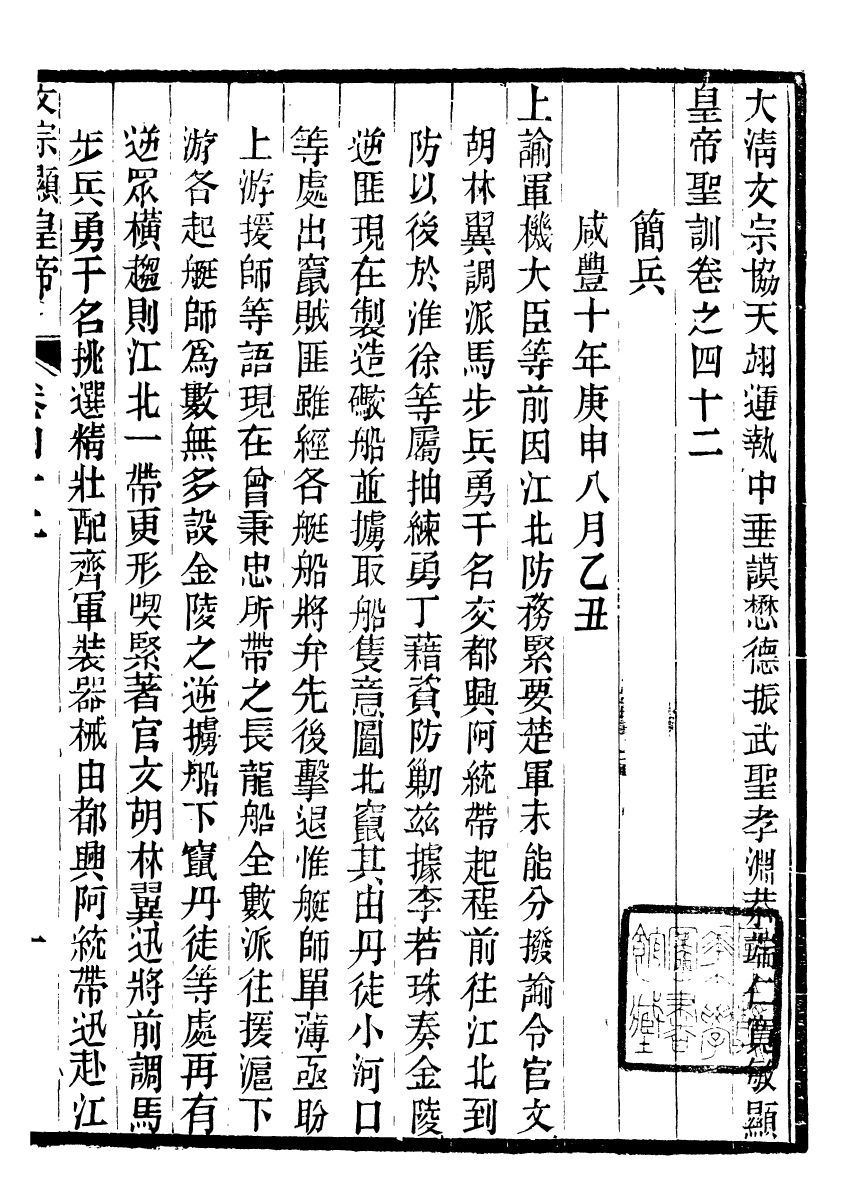 大淸文宗協天翊運執中垂謨懋德振武聖孝淵恭端仁寬敏顯
皇帝聖訓卷之四十二
簡兵
咸豐十年庚申八月乙丑
上諭軍機大臣等前因江北防務緊要楚軍未能分撥諭令官文
胡林翼調派馬步兵勇千名交都興阿統帶起程前往江北到
防以後於淮徐等屬抽練勇丁藉資防勦玆據李若珠奏金陵
逆匪現在製造礮船並擄取船隻意圖北竄其由丹徒小河口
等處出竄賊匪雖經各艇船將弁先後擊退惟艇師單薄亟盼
上游援師等語現在曾秉忠所帶之長龍船全數派往援滬下
游各起艇師爲數無多設金陵之逆擄船下竄丹徒等處再有
逆眾橫趨則江北一帶更形喫緊著官文胡林翼迅將前調馬
步兵勇千名挑選精壯配齊軍裝器械由都興阿統帶迅赴江
文宗顯皇帝 卷四十二 一